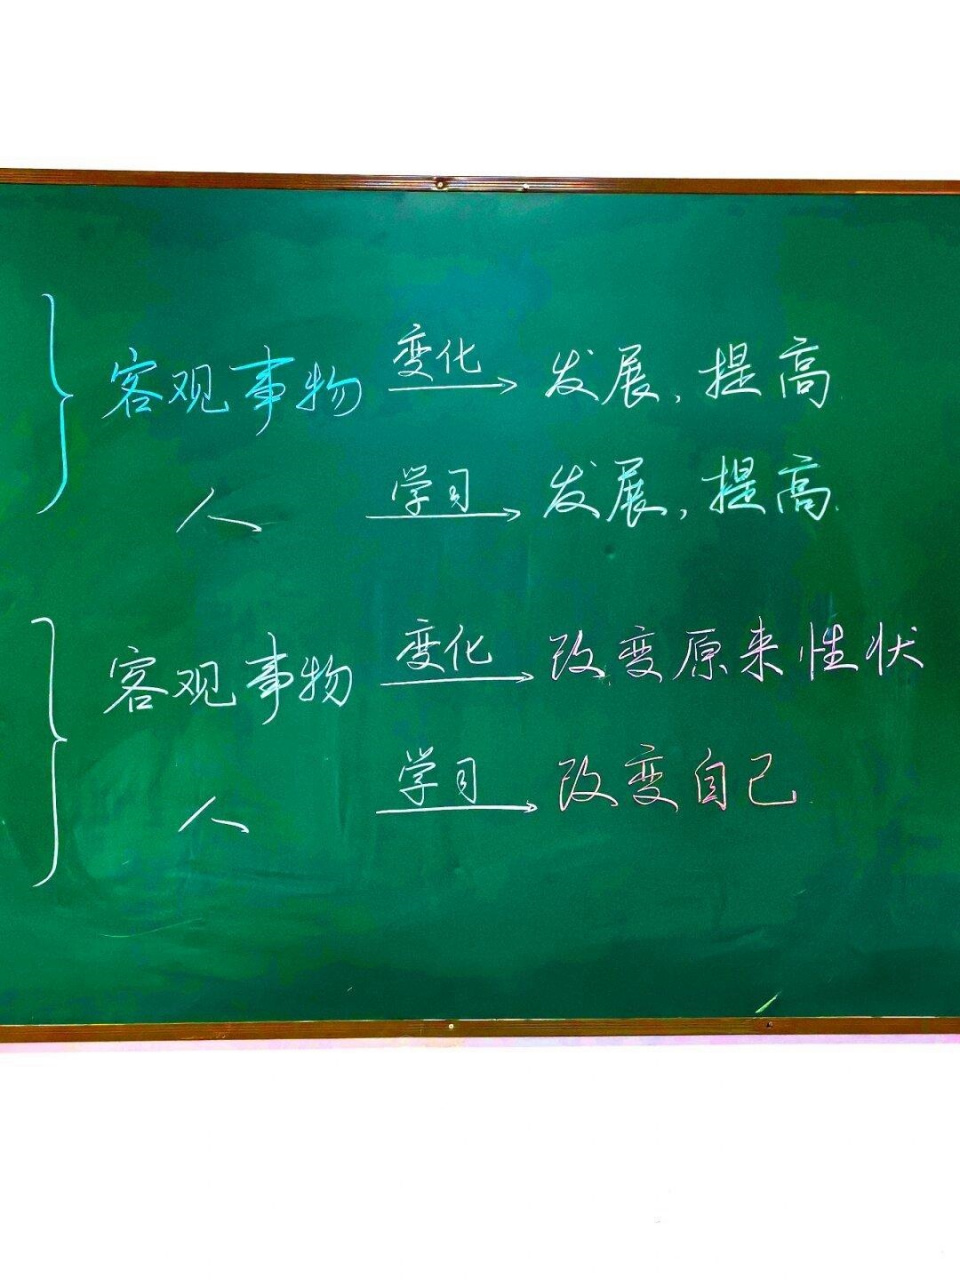 客观事物 变化 发展,提高
人 学习 发展,提高
客观事物 变化 改变原来性状
人 学习 改变自己